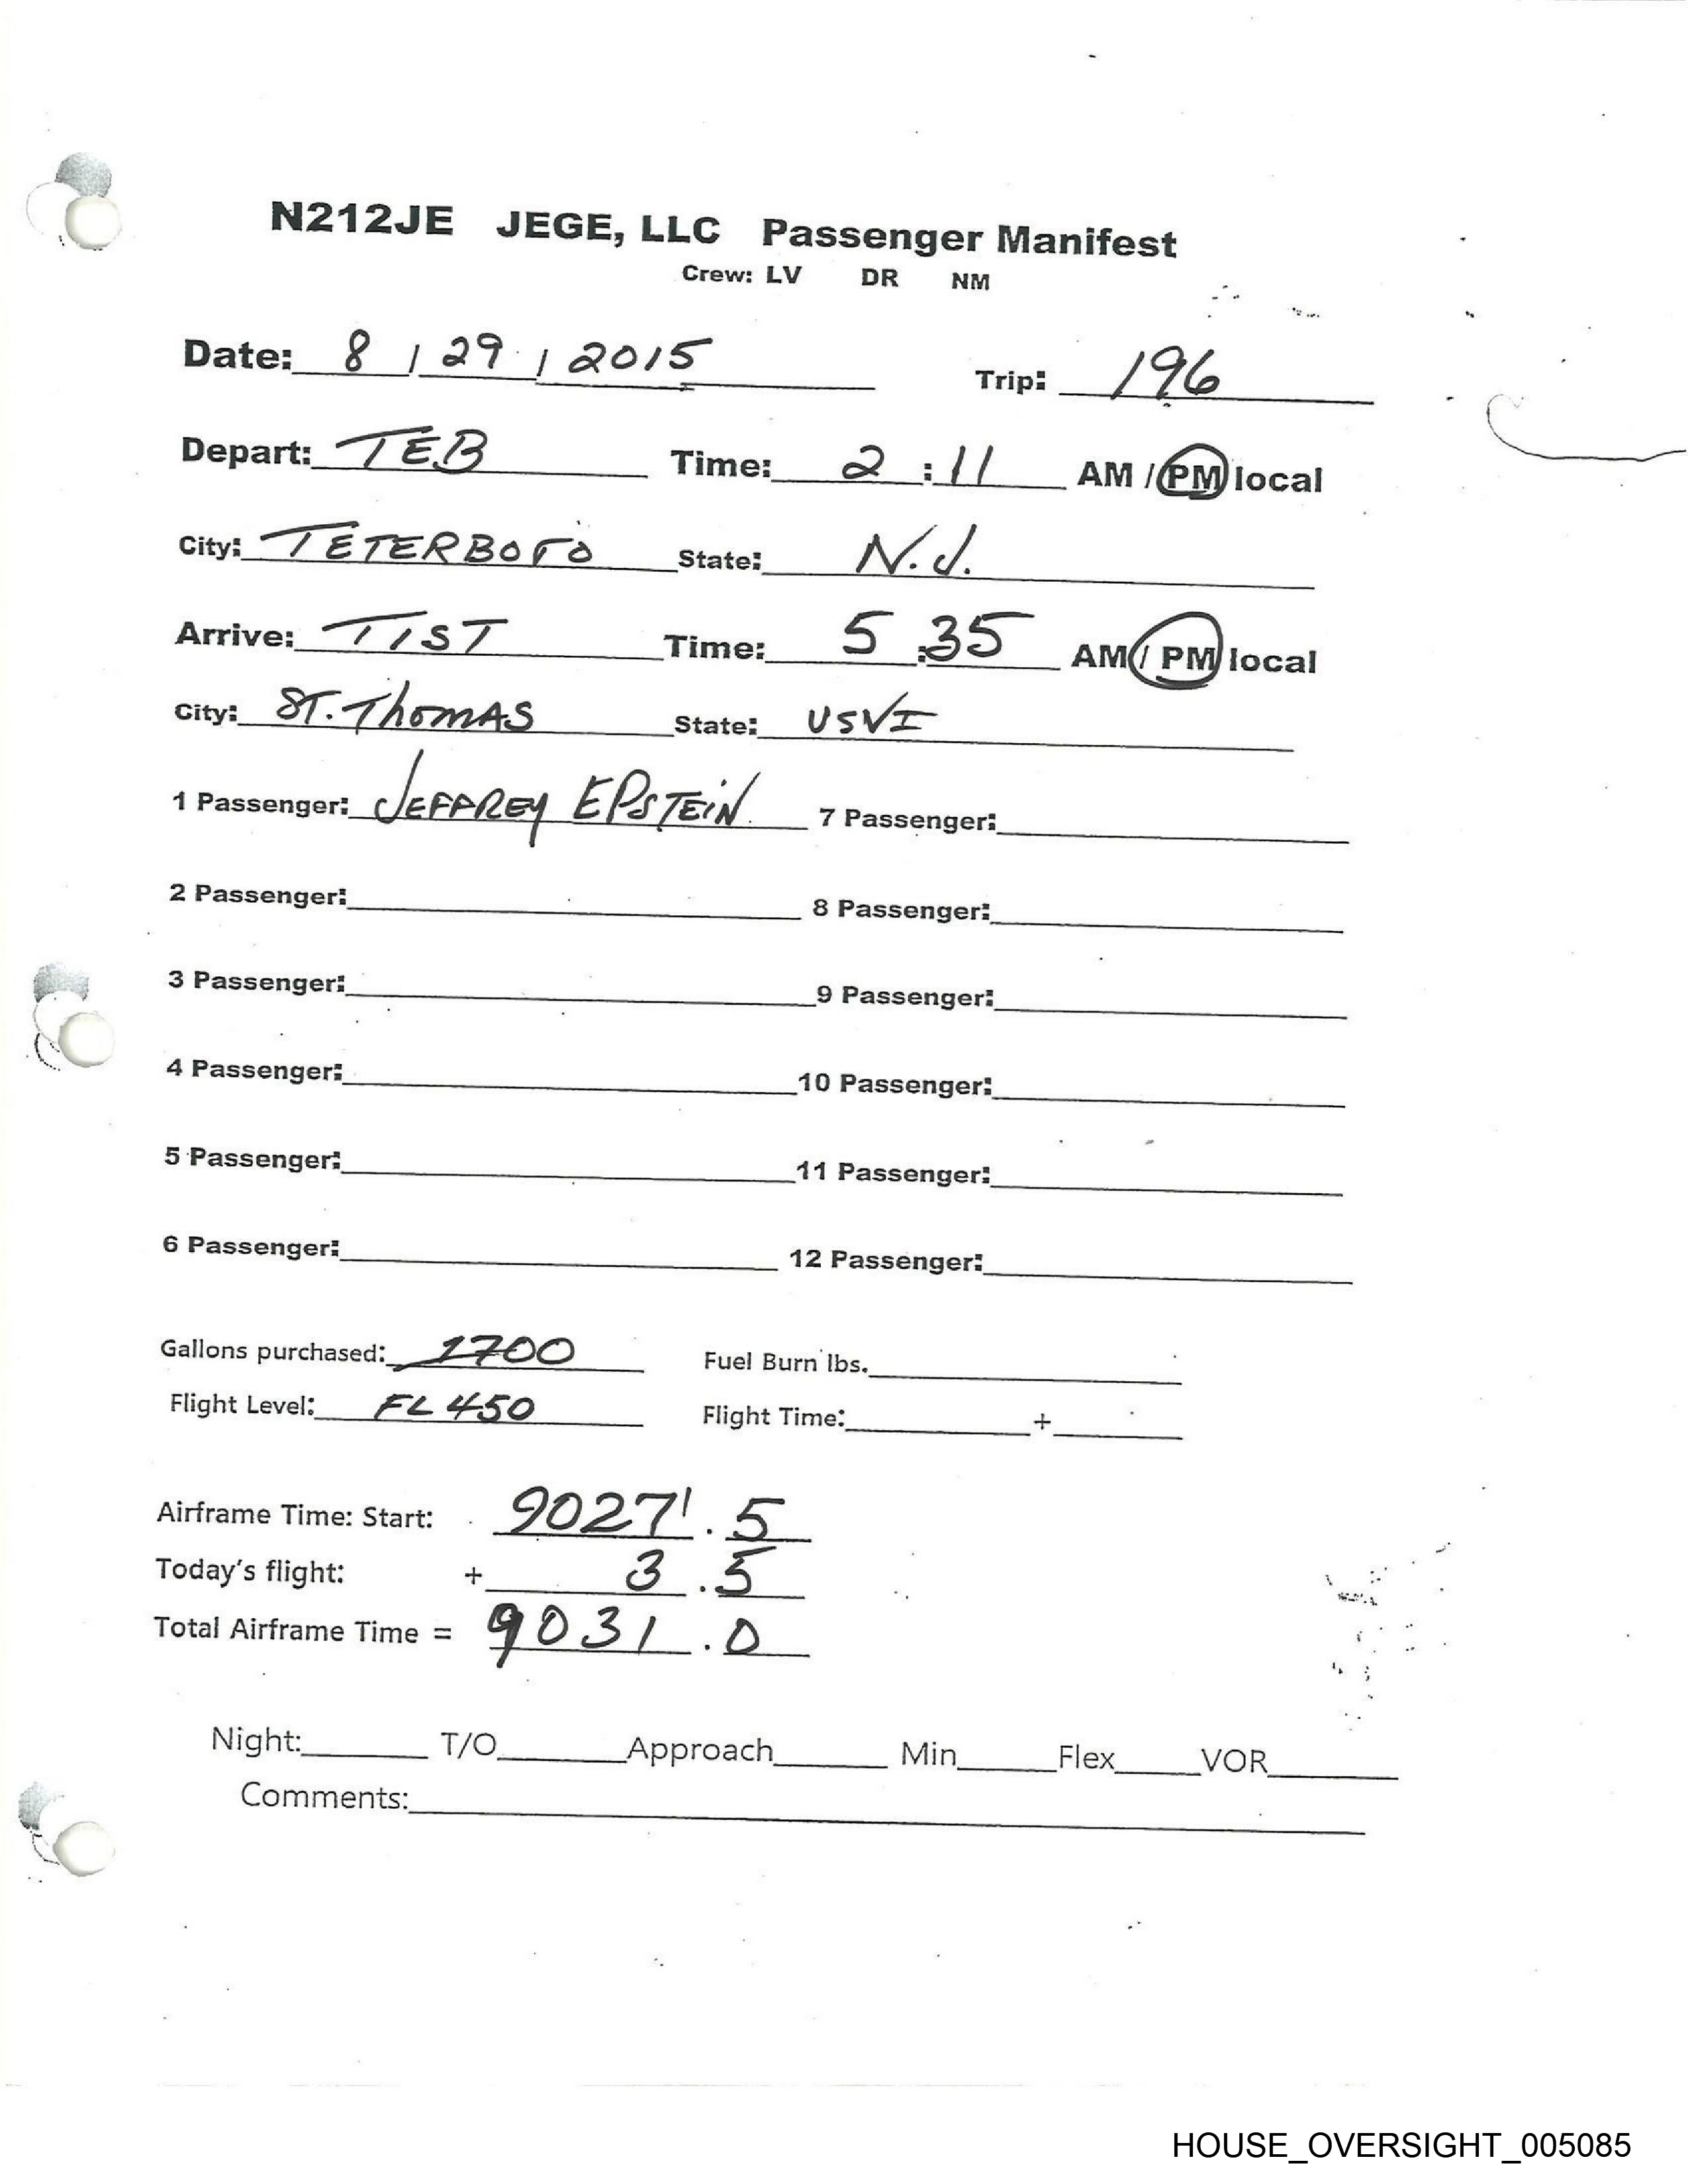 N212JE JEGE, LLC Passenger Manifest
Crew: LV DR NM
Date: 8 / 29 / 2015 Trip: 196
Depart: TEB Time: 2 : 11 AM / PM local
City: TETERBORO State: N.J.
Arrive: TIST Time: 5 : 35 AM / PM local
City: ST. THOMAS State: USVI
1 Passenger: JEFFREY EPSTEIN 7 Passenger:
2 Passenger: 8 Passenger:
3 Passenger: 9 Passenger:
4 Passenger: 10 Passenger:
5 Passenger: 11 Passenger:
6 Passenger: 12 Passenger:
Gallons purchased: 1700 Fuel Burn lbs.
Flight Level: FL 450 Flight Time: +
Airframe Time: Start: 9027 . 5
Today's flight: + 3 . 5
Total Airframe Time = 9031 . 0
Night: T/O Approach Min Flex VOR
Comments:
HOUSE_OVERSIGHT_005085